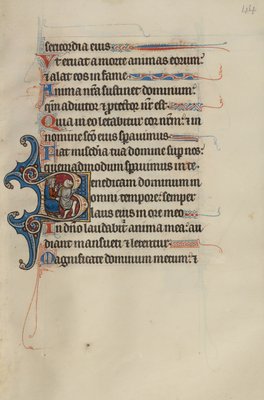 sericordia eius
Ut eruat a morte animas eorum:
et alat eos in fame
Anima nra sustinet dominum:
qm adiutor et protector nr est
Quia in eo letabitur cor nrm: et in
nomine sco eius speravimus
Fiat misedia tua domine sup nos:
quemadmodum speravimus in te
Benedicam dominum in
omni tempore: semper
laus eius in ore meo
In dno laudabitur anima mea: au
diant mansueti et letentur
Magnificate dominum mecum: et